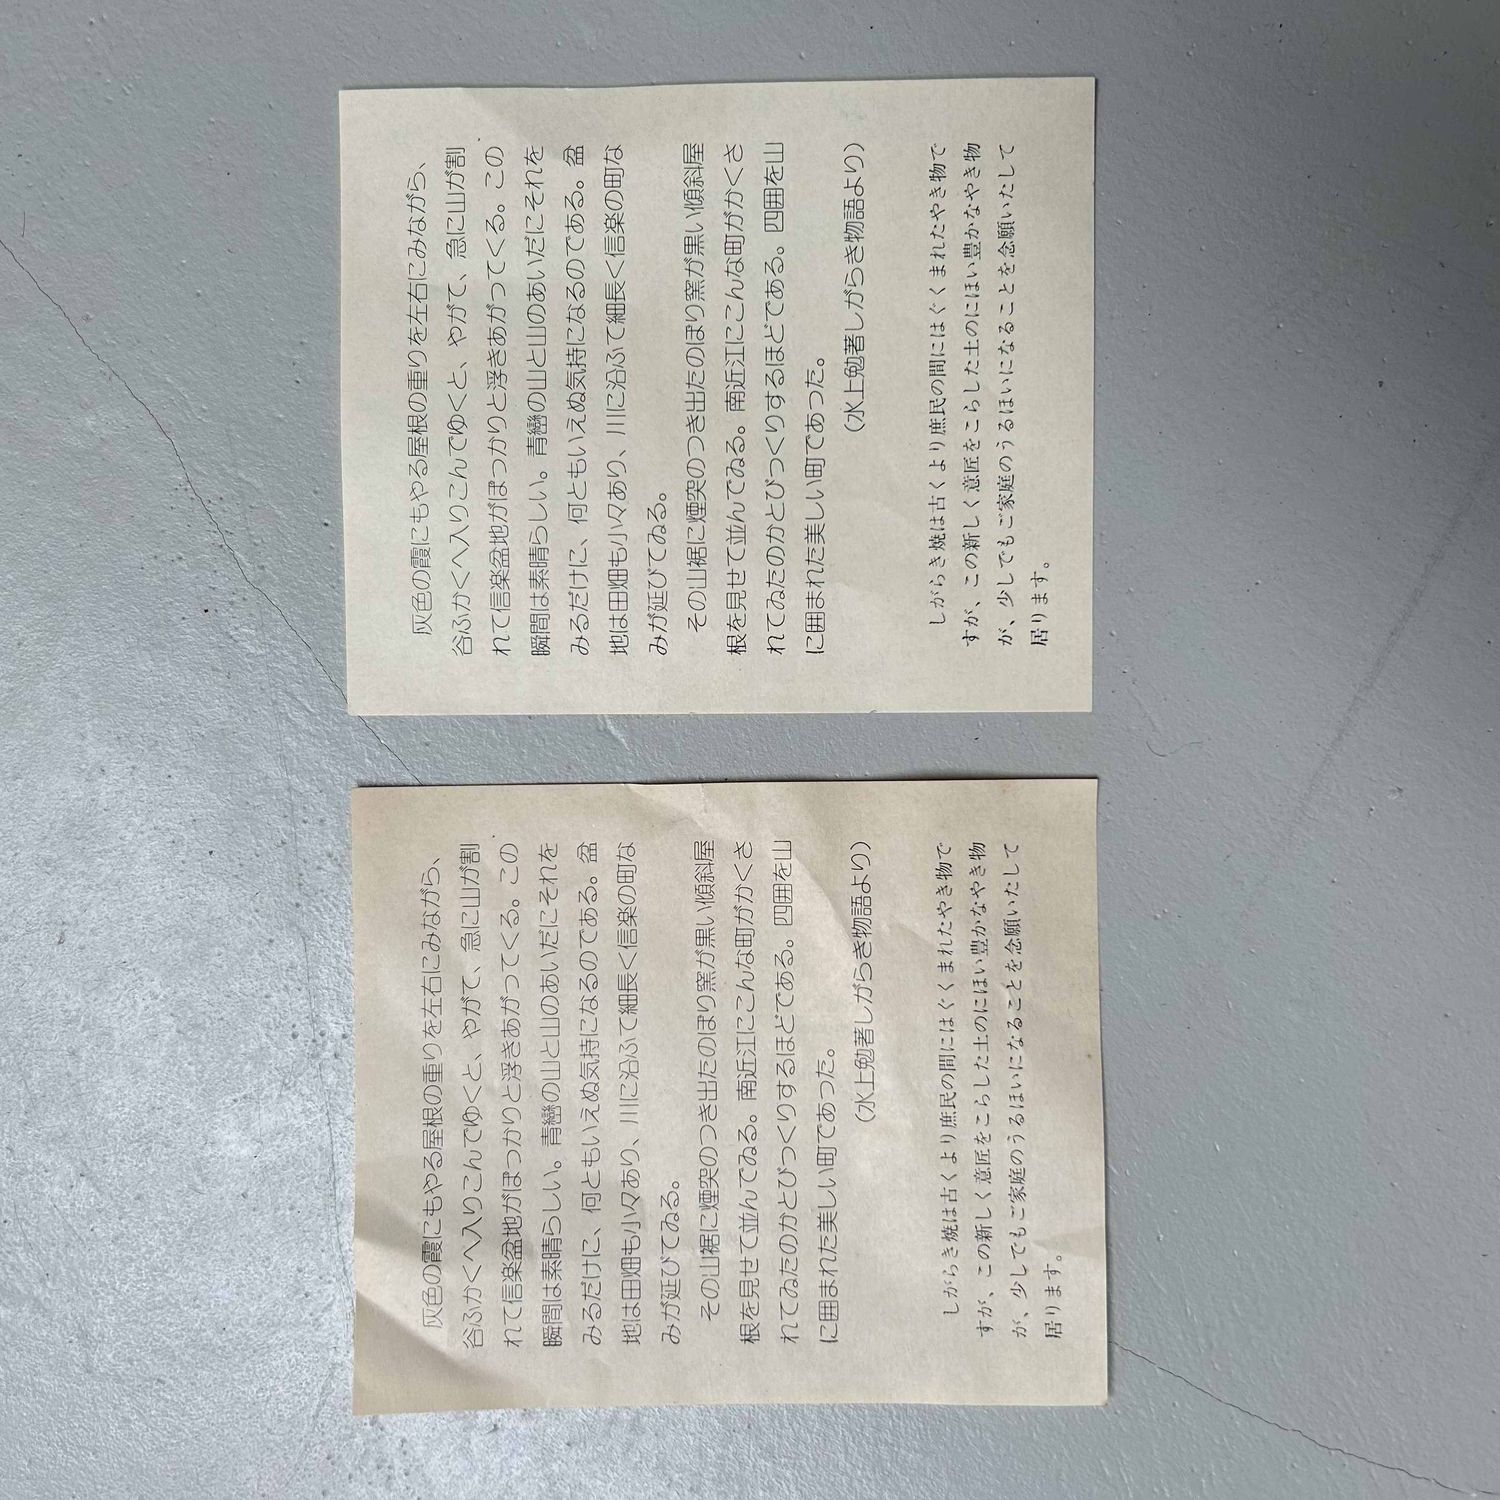 灰色の霞にもやる屋根の重りを左右にみながら、
谷ふかくへ入りこんでゆくと、やがて、急に山が割
れて信楽盆地がぽっかりと浮きあがってくる。この
瞬間は素晴らしい。青巒の山と山のあいだにそれを
みるだけに、何ともいえぬ気持になるのである。盆
地は田畑も小々あり、川に沿ふて細長く信楽の町な
みが延びてゐる。
その山裾に煙突のつき出たのぼり窯が黒い傾斜屋
根を見せて並んでゐる。南近江にこんな町がかくさ
れてゐたのかとびつくりするほどである。四囲を山
に囲まれた美しい町であつた。
(水上勉著しがらき物語より)
しがらき焼は古くより庶民の間にはぐくまれたやき物で
すが、この新しく意匠をこらした土のにほい豊かなやき物
が、少しでもご家庭のうるほいになることを念願いたして
居ります。
灰色の霞にもやる屋根の重りを左右にみながら、
谷ふかくへ入りこんでゆくと、やがて、急に山が割
れて信楽盆地がぽっかりと浮きあがってくる。この
瞬間は素晴らしい。青巒の山と山のあいだにそれを
みるだけに、何ともいえぬ気持になるのである。盆
地は田畑も小々あり、川に沿ふて細長く信楽の町な
みが延びてゐる。
その山裾に煙突のつき出たのぼり窯が黒い傾斜屋
根を見せて並んでゐる。南近江にこんな町がかくさ
れてゐたのかとびつくりするほどである。四囲を山
に囲まれた美しい町であつた。
(水上勉著しがらき物語より)
しがらき焼は古くより庶民の間にはぐくまれたやき物で
すが、この新しく意匠をこらした土のにほい豊かなやき物
が、少しでもご家庭のうるほいになることを念願いたして
居ります。